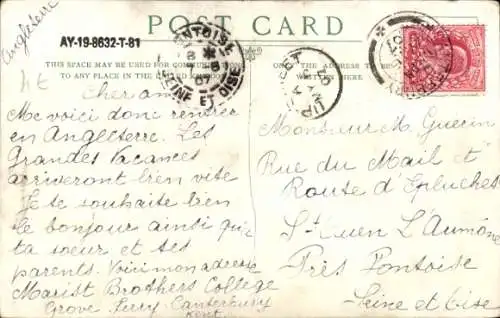 Angleterre
POST CARD
AY-19-8632-T-81
THIS SPACE MAY BE USED FOR COMMUNICATION
TO ANY PLACE IN THE
THE ADDRESS TO BE
WRITTEN HERE.
PONTOISE
SEINE ET OISE
4t
Cher ami
Me voici donc rentrer
en Angleterre. Les
Grandes Vacances
arriveront bien vite
Je te souhaite bien
le bonjour ainsi qu'a
ta soeur et tes
parents. Voici mon adresse
Marist Brothers College
Grove Ferry Canterbury
Kent.
Monsieur M. Guerin
Rue du Mail et
Route d'Epluches
St Ouen L'Aumône
Près Pontoise
Seine et Oise